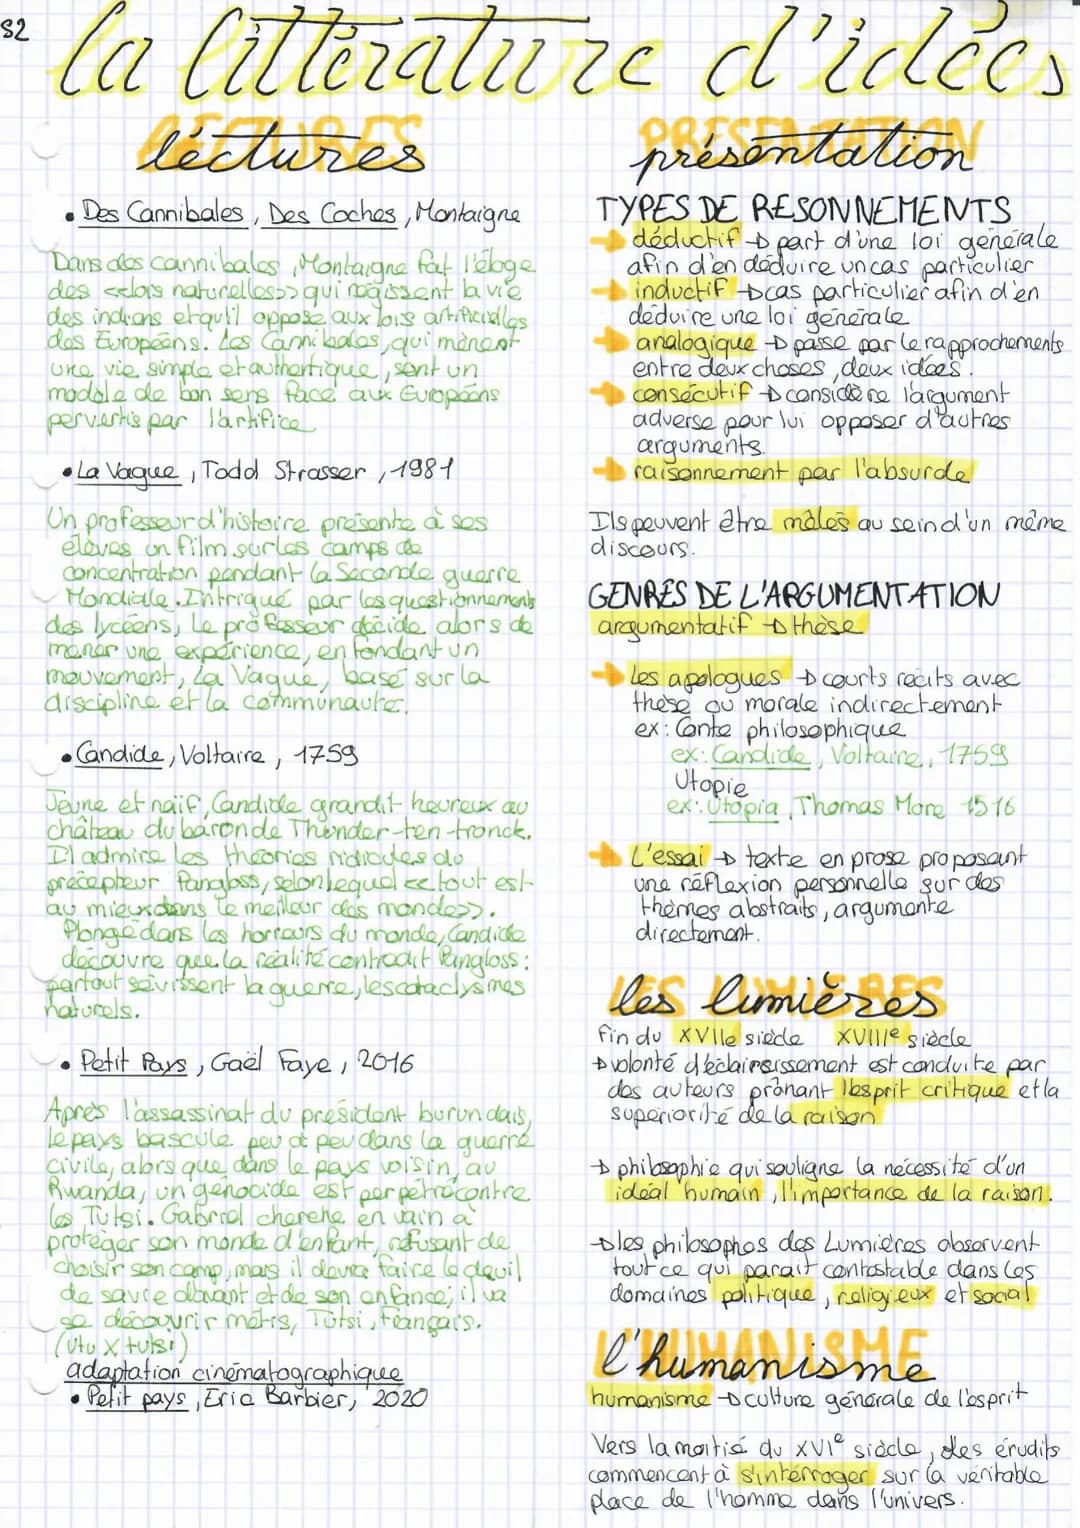 S2
la littérature d'idées
LECTURES
lectures
• Des Cannibales, Des Coches, Montaigne
Dans des cannibales, Montaigne fat l'éloge
des <<lois naturelles>> qui régissent la vie
des indiens et qu'il oppose aux lois artificielles
des Européens. Les Cannibales, qui mènent
une vie simple et authentique, sont un
modèle de bon sens face aux Européens
pervertis par l'artifice
• La Vague, Todd Strasser, 1981
Un professeur d'histoire présente à ses
élèves un film sur les camps de
concentration pendant la Seconde guerre
Mondiale. Intrigué par les questionnements
des lycéens, le professeur décide alors de
mener une expérience, en fondant un
mouvement, La Vague, basé sur la
discipline et la communauté.
• Candide, Voltaire, 1759
Jeune et naïf, Candide grandit heureux au
château du baron de Thunder-ten-tronck.
Il admire les théories ridicules du
précepteur Pangloss, selon lequel <<tout est
au mieux dans le meilleur des mondes>>.
Plongé dans les horreurs du monde, Candide
découvre que la réalité contredit Pangloss:
partout sévissent la guerre, les cataclysmes
naturels.
• Petit Pays, Gaël Faye, 2016
Après l'assassinat du président burundais,
le pays bascule peu à peu dans la guerre
civile, alors que dans le pays voisin, au
Rwanda, un génocide est perpétré contre
les Tutsi. Gabriel cherche en vain à
protéger son monde d'enfant, refusant de
choisir son camp, mais il devra faire le deuil
de sa vie d'avant et de son enfance; il va
se découvrir métis, Tutsi, Français.
(Utu X tutsi)
adaptation cinématographique
• Petit pays, Eric Barbier, 2020
PRESENTATION
présentation
TYPES DE RESONNEMENTS
déductif → part d'une loi générale
afin d'en déduire un cas particulier
inductif → cas particulier afin d'en
déduire une loi générale
analogique → passe par le rapprochements
entre deux choses, deux idées.
consécutif → considère l'argument
adverse pour lui opposer d'autres
arguments.
raisonnement par l'absurde
Ils peuvent être mêlés au sein d'un même
discours.
GENRES DE L'ARGUMENTATION
argumentatif → thèse
Les apologues → courts récits avec
thèse ou morale indirectement
ex: Conte philosophique
ex: Candide, Voltaire, 1759
Utopie
ex: Utopia, Thomas More 1516
L'essai → texte en prose proposant
une réflexion personnelle sur des
thèmes abstraits, argumente
directement.
LES LUMIÈRES
les lumières
fin du XVIIe siècle XVIIIe siècle
→ volonté d'éclaircissement est conduite par
des auteurs prônant l'esprit critique et la
supériorité de la raison
→ philosophie qui souligne la nécessité d'un
idéal humain, l'importance de la raison.
→ les philosophes des Lumières observent
tout ce qui parait contestable dans les
domaines politique, religieux et social
L'HUMANISME
l'humanisme
humanisme → culture générale de l'esprit
Vers la moitié du XVIe siècle, des érudits
commencent à s'intérroger sur la véritable
place de l'homme dans l'univers.